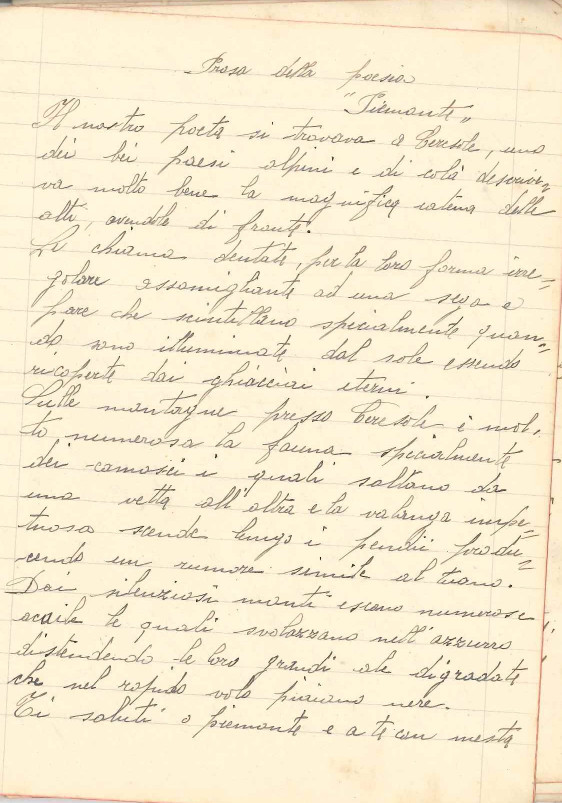 Prosa della poesia
"Piemonte"
Il nostro poeta si trovava a Ceresole, uno
dei bei paesi alpini e di colà descrive-
va molto bene la magnifica catena delle
alti, avendole di fronte.
Le chiama dentate, per la loro forma irre-
golare assomigliante ad una sega e
pare che scintillano specialmente quan-
do sono illuminate dal sole essendo
ricoperte dai ghiacciai eterni.
Sulle montagne presso Ceresole è mol-
to numerosa la fauna specialmente
dei camosci i quali saltano da
una vetta all'altra e la valanga impe-
tuosa scende lungo i pendii produ-
cendo un rumore simile al tuono.
Dai silenziosi monti escono numerose
le quali svolazzano nell'azzurro
distendendo le loro grandi ale digradate
che nel rapido volo paiono nere.
Ti saluti o piemonte e a te con mesta